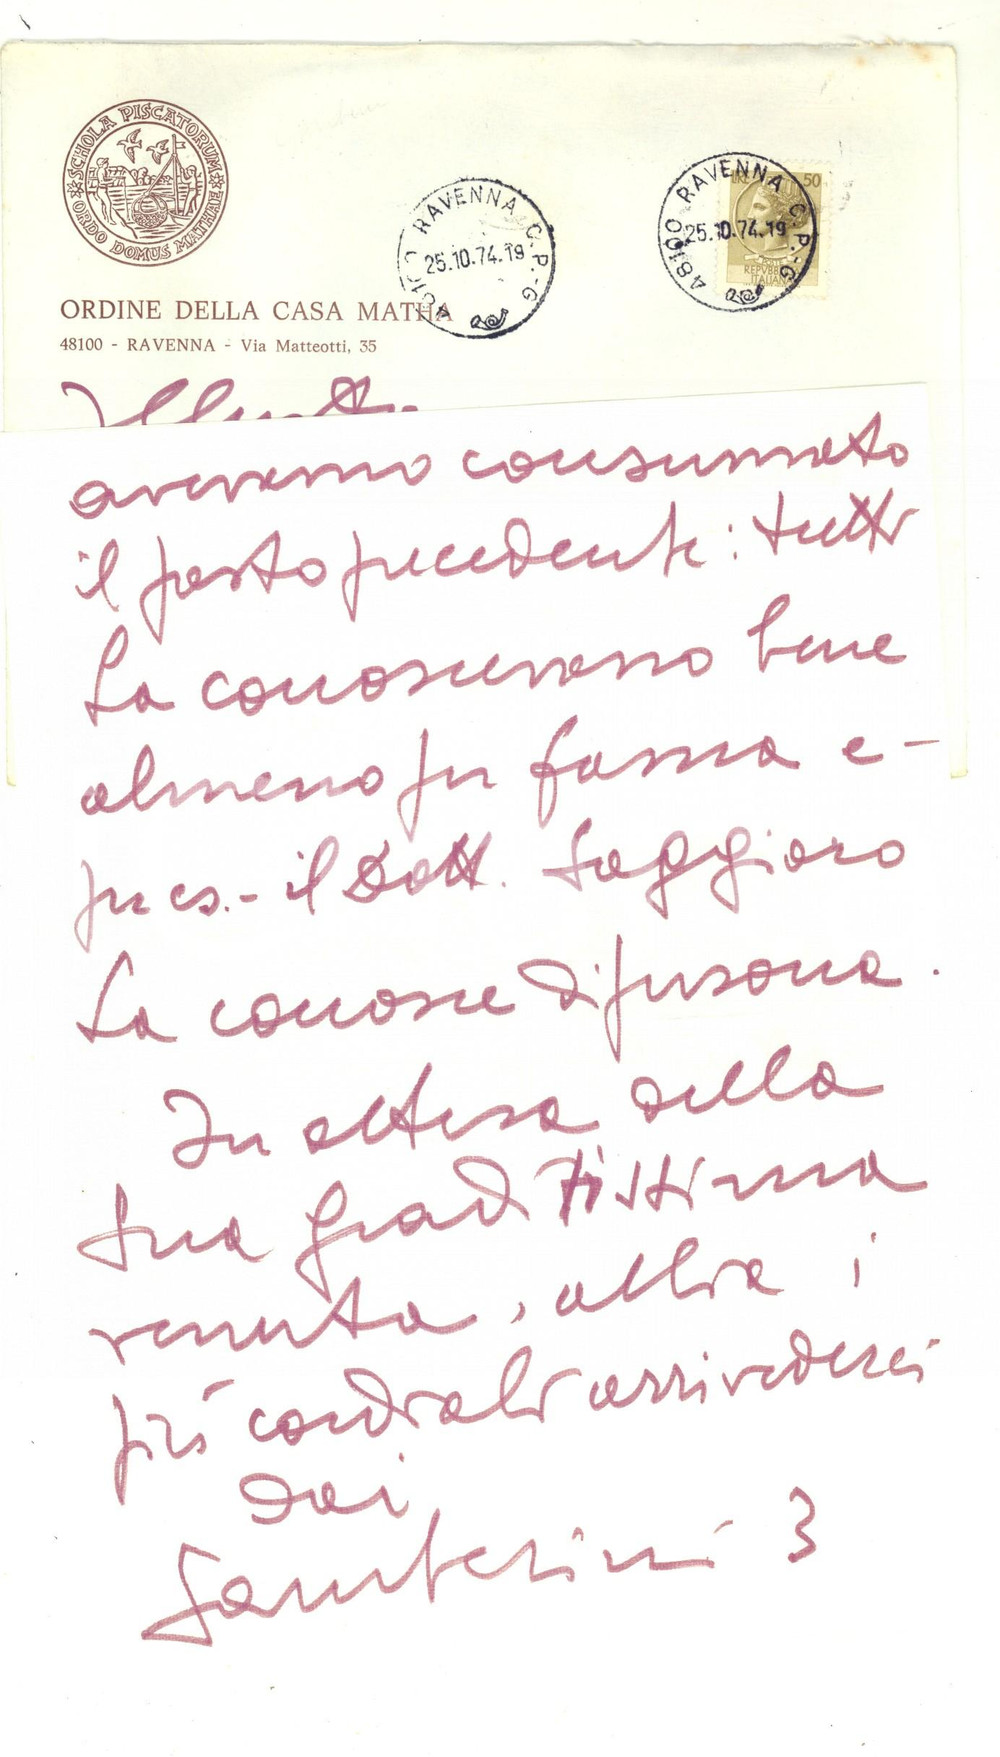 SCHOLA PISCATORUM
ORDO DOMUS MATHAE
48100 RAVENNA C.P.-G
25.10.74.19
48100 RAVENNA C.P.-G
25.10.74.19
LIRE 50
POSTE
REPVBBLICA
ITALIANA
ORDINE DELLA CASA MATHA
48100 - RAVENNA - Via Matteotti, 35
avevamo consumato
il pasto precedente: tutti
La conoscevano bene
almeno per fama e -
pres.- il Dott. Saggioro
La conosce di persona.
In attesa della
Sua graditissima
venuta, abbia i
più cordiali arrivederci
dai
Santerini 3